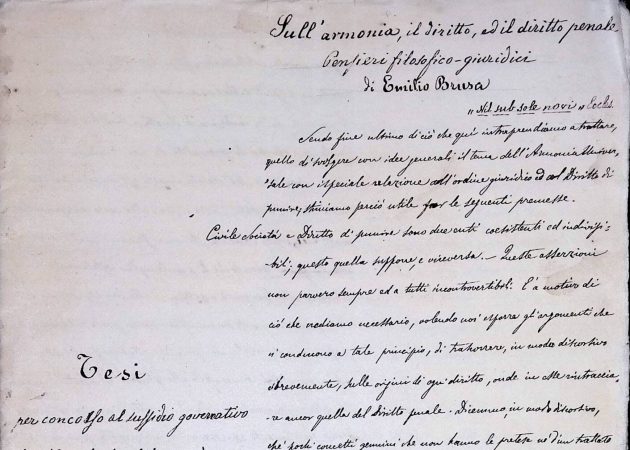 Sull'armonia, il diritto, ed il diritto penale
Pensieri filosofico-giuridici
di Emilio Brusa
"Nil sub sole novi" Eccles.
Sendo fine ultimo di ciò che qui intraprendiamo a trattare,
quello di svolgere con idee generali il tema dell'Armonia Univer-
sale con ispeciale relazione all'ordine giuridico ed al Diritto di
punire, stimiamo perciò utile far le seguenti premesse.
Civile Società e Diritto di punire sono due enti coesistenti ed indivisi-
bili; questo quella suppone, e viceversa. - Queste asserzioni
non parvero sempre ed a tutti incontrovertibili. E' a motivo di
ciò che crediamo necessario, volendo noi esporre gl'argomenti che
ci conducono a tale principio, di trascorrere, in modo discorsivo
brevemente, sulle origini di ogni diritto, onde in esse rintraccia-
re ancor quella del Diritto penale. - Diremmo, in modo discorsivo,
chè pochi concetti che non hanno le pretese nè d'un trattato
Tesi
per concorso al sussidio governativo